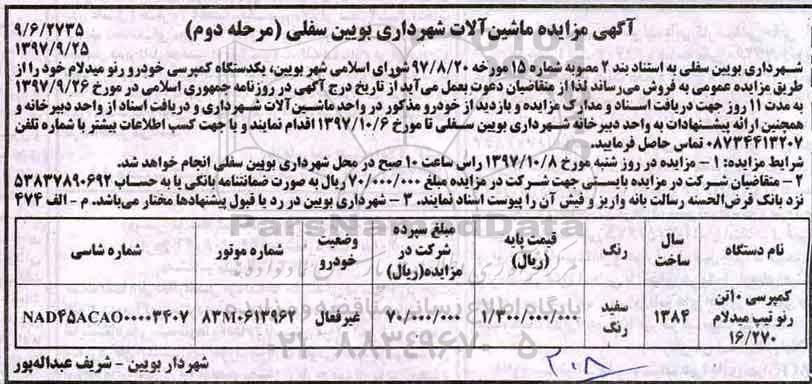 آگهی مزایده ماشین‌آلات شهرداری بویین سفلی (مرحله دوم)
۹/۶/۲۷۳۵
۱۳۹۷/۹/۲۵
شهرداری بویین سفلی به استناد بند ۲ مصوبه شماره ۱۵ مورخه ۹۷/۸/۲۰ شورای اسلامی شهر بویین، یکدستگاه کمپرسی خودرو رنو میدلام خود را از
طریق مزایده عمومی به فروش می‌رساند لذا از متقاضیان دعوت بعمل می‌آید از تاریخ درج آگهی در روزنامه جمهوری اسلامی در مورخ ۱۳۹۷/۹/۲۶
به مدت ۱۱ روز جهت دریافت اسناد و مدارک مزایده و بازدید از خودرو مذکور در واحد ماشین‌آلات شهرداری و دریافت اسناد از واحد دبیرخانه و
همچنین ارائه پیشنهادات به واحد دبیرخانه شهرداری بویین سفلی تا مورخ ۱۳۹۷/۱۰/۶ اقدام نمایند و یا جهت کسب اطلاعات بیشتر با شماره تلفن
۰۸۷۳۴۴۱۳۲۰۷ تماس حاصل فرمایید.
شرایط مزایده: ۱ - مزایده در روز شنبه مورخ ۱۳۹۷/۱۰/۸ راس ساعت ۱۰ صبح در محل شهرداری بویین سفلی انجام خواهد شد.
۲ - متقاضیان شرکت در مزایده بایستی جهت شرکت در مزایده مبلغ ۷۰/۰۰۰/۰۰۰ ریال به صورت ضمانتنامه بانکی یا به حساب ۵۳۸۳۷۸۹۰۶۹۲
نزد بانک قرض‌الحسنه رسالت بانه واریز و فیش آن را پیوست اسناد نمایند. ۳ - شهرداری بویین در رد یا قبول پیشنهادها مختار می‌باشد. م - الف ۴۷۴
نام دستگاه
سال ساخت
رنگ
قیمت پایه (ریال)
مبلغ سپرده شرکت در مزایده(ریال)
وضعیت خودرو
شماره موتور
شماره شاسی
کمپرسی ۱۰تن رنو تیپ میدلام ۱۶/۲۷۰
۱۳۸۴
سفید رنگ
۱/۳۰۰/۰۰۰/۰۰۰
۷۰/۰۰۰/۰۰۰
غیرفعال
۸۳M۰۶۱۳۹۶۲
NAD۴۵ACAO۰۰۰۰۳۴۰۷
شهردار بویین - شریف عبداله‌پور
۲۰۸
ParsNamadData
پایگاه اطلاع رسانی مناقصه و مزایده
۰۲۱-۸۸۳۴۹۶۷۰-۵